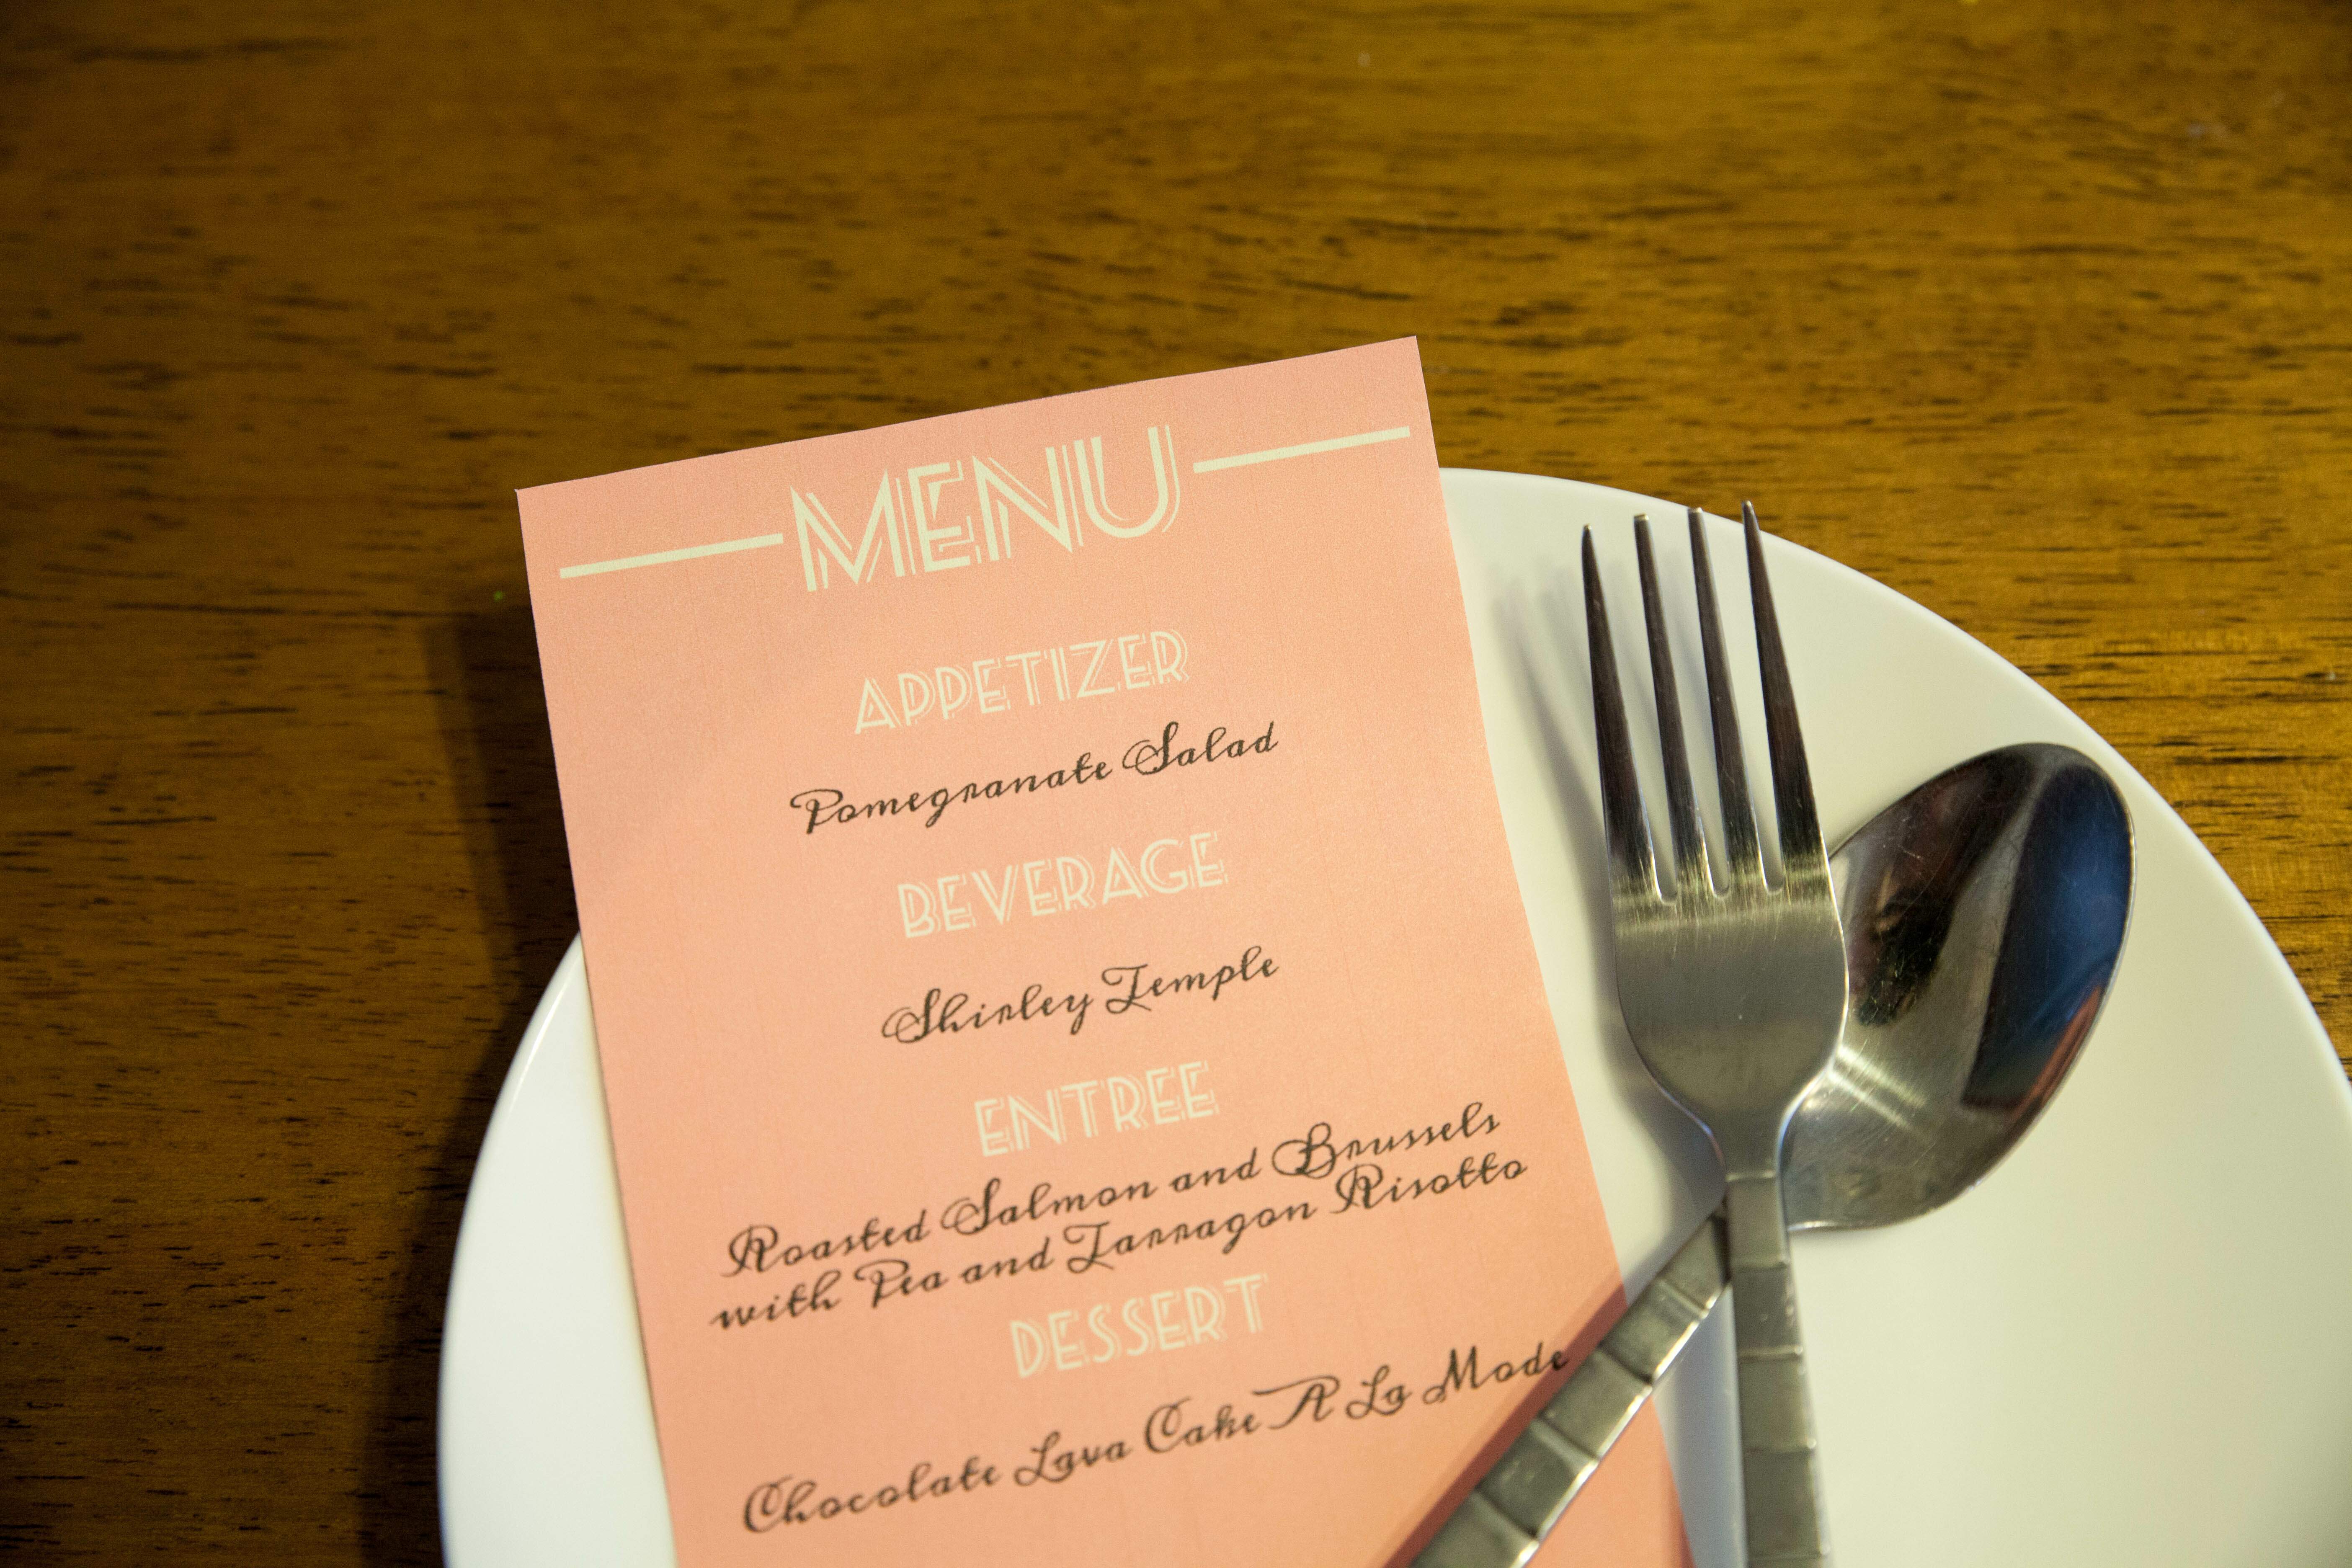 MENU
APPETIZER
Pomegranate Salad
BEVERAGE
Shirley Temple
ENTREE
Roasted Salmon and Brussels
with Pea and Tarragon Risotto
DESSERT
Chocolate Lava Cake A La Mode